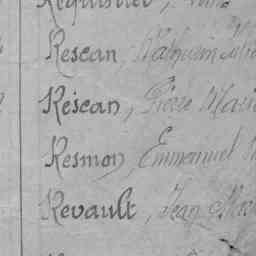 Rescan, Mathurin
Réscan, Pierre Marie
Resmon, Emmanuel
Revault, Jean Marie